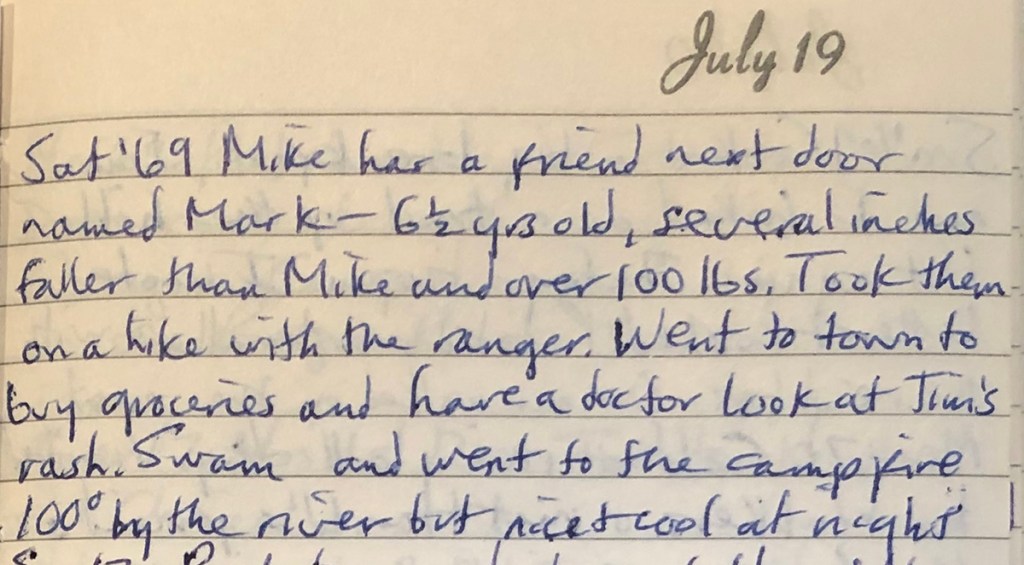 July 19
Sat '69 Mike has a friend next door
named Mark - 6½ yrs old, several inches
taller than Mike and over 100 lbs. Took them
on a hike with the ranger. Went to town to
buy groceries and have a doctor look at Jim's
rash. Swam and went to the campfire
100° by the river but nice & cool at night